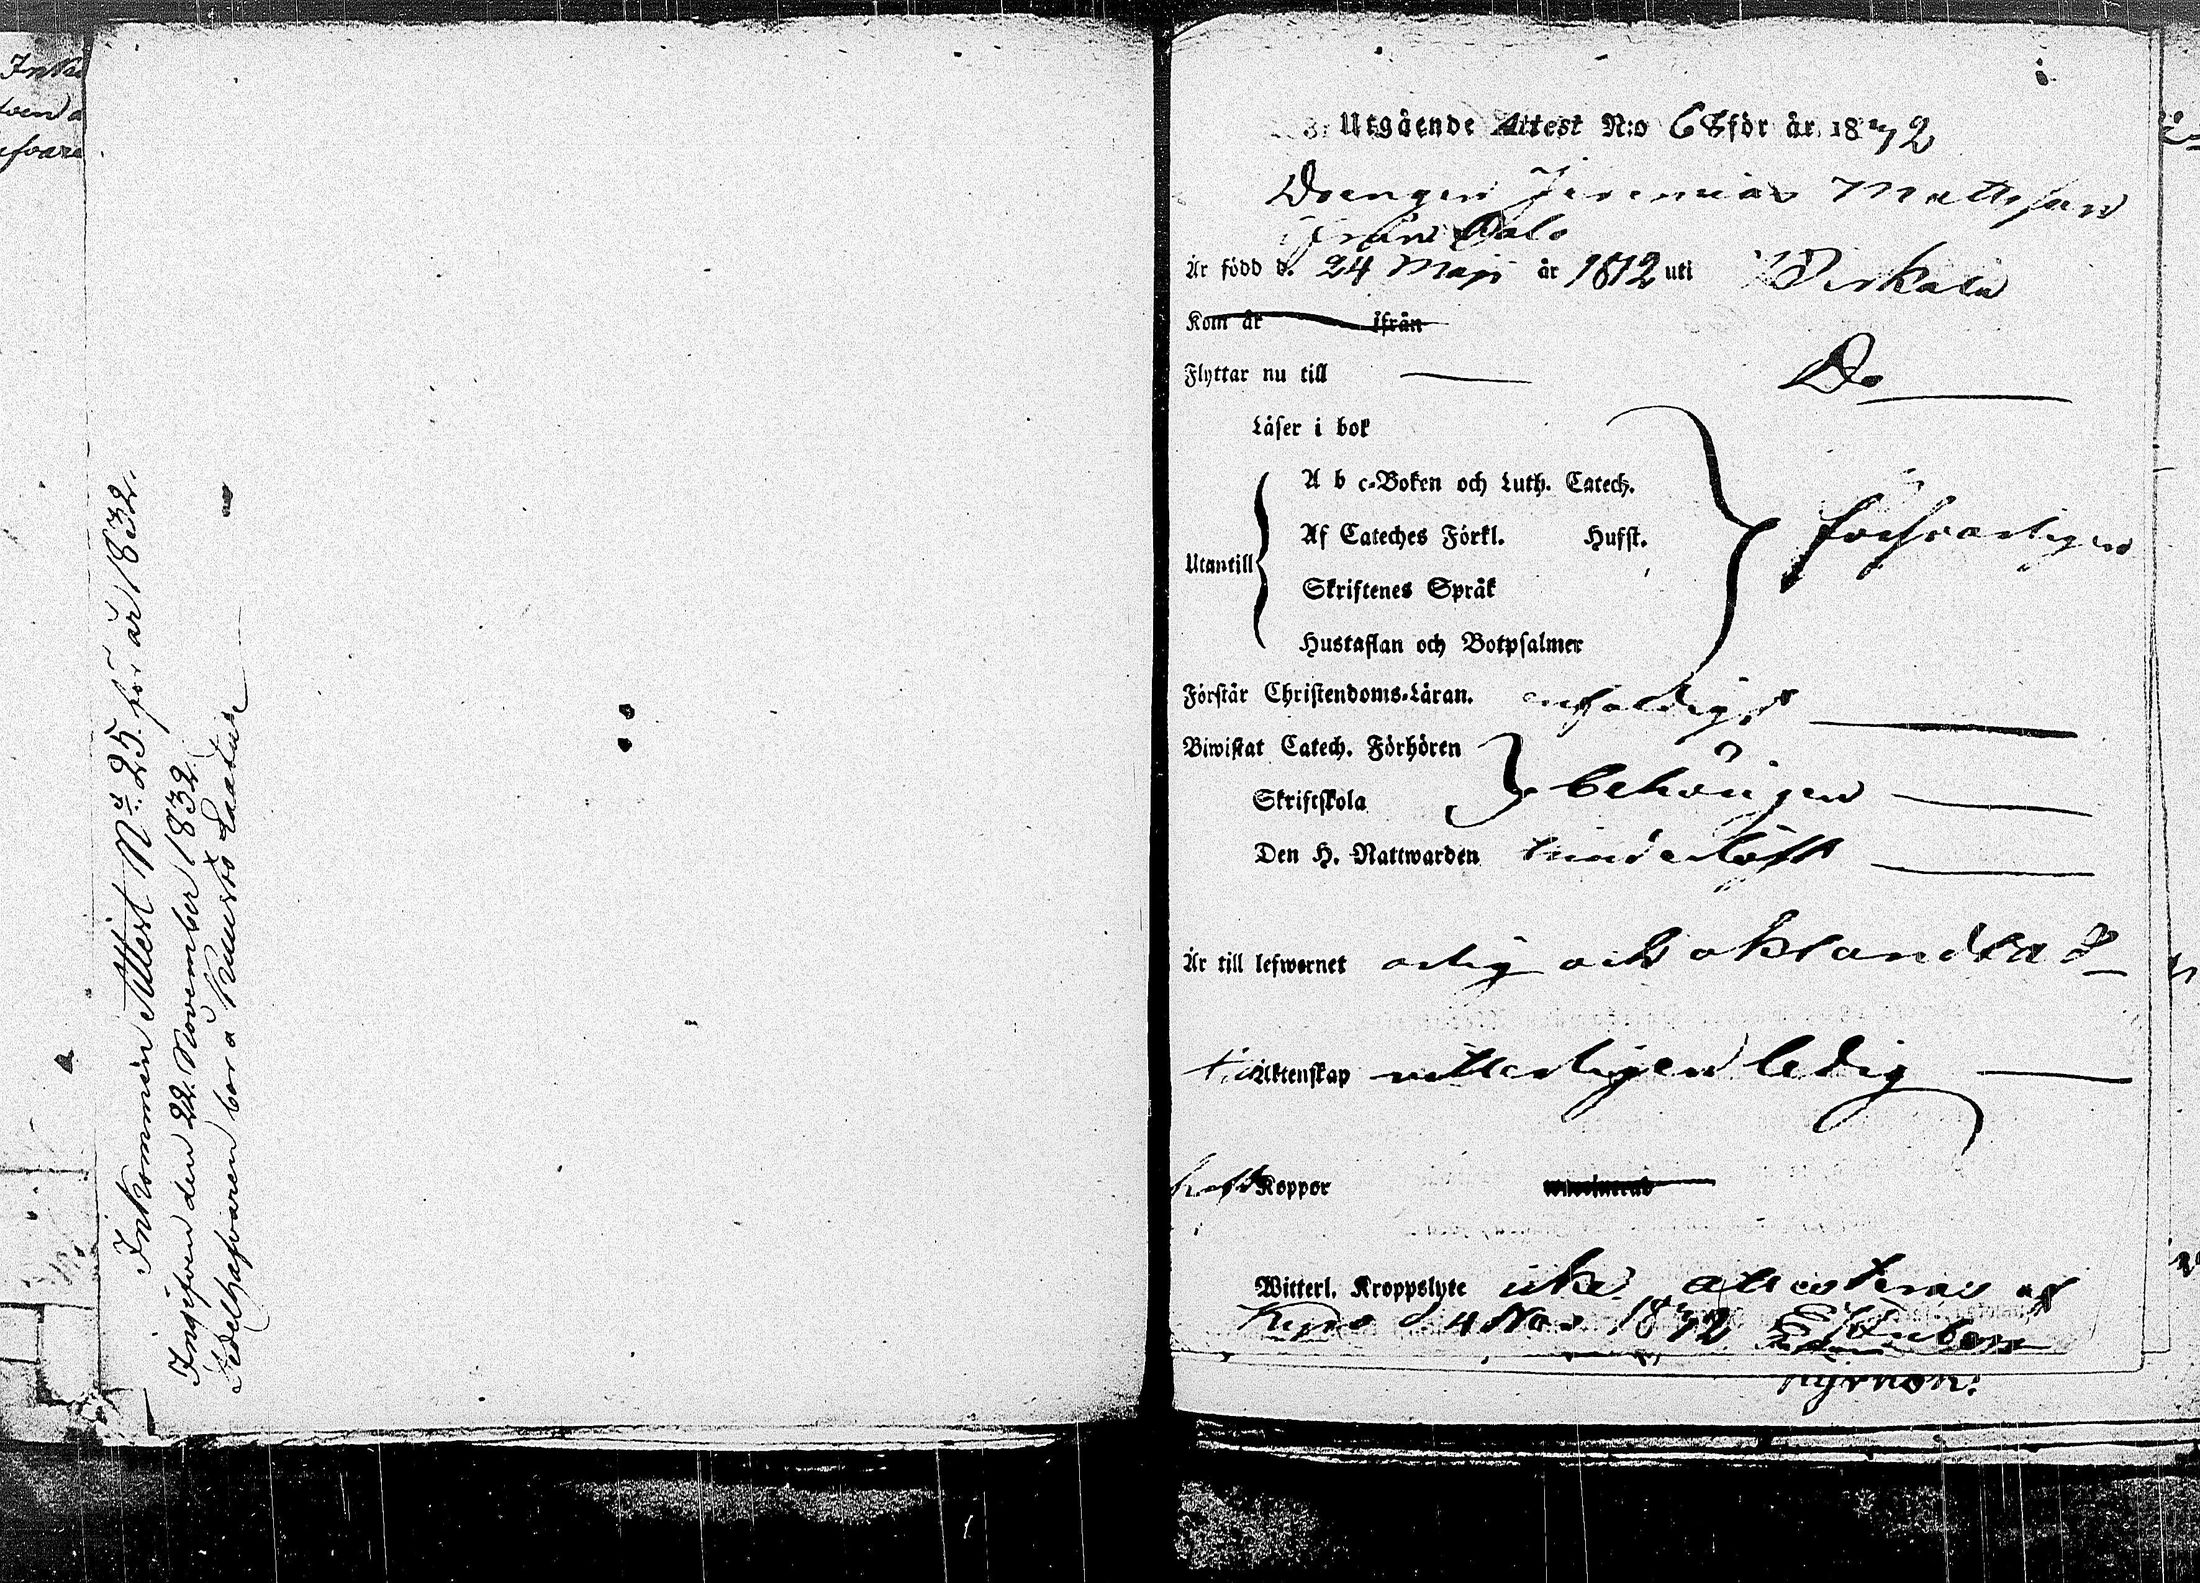 Inkommen Attest No. 25. för år 1832.
Ingifven den 22. November 1832.
Sedelhafvaren bor à Knuuti Laatu
Utgående Attest N:o 68 för år 1832
Drengen Jeremias Mattsson
ifrån Palo
Är född d. 24 Maji år 1812 uti Birkala
Kom år ifrån
Flyttar nu till Do
Läser i bok
A b c-Boken och Luth. Catech.
Af Cateches Förkl. Husst. försvarligen
Utantill
Skriftenes Språk
Hustaflan och Botpsalmer
Förstår Christendoms-Läran. enfaldigt
Biwistat Catech. Förhören
Skriftskola behörigen
Den H. Nattwarden
Är till lefwernet ärlig och oklandrad
till Äktenskap vitterligen ledig
haft Koppor
Witterl. Kroppslyte icke attesteras af
Kyro d. 4 Nov. 1832